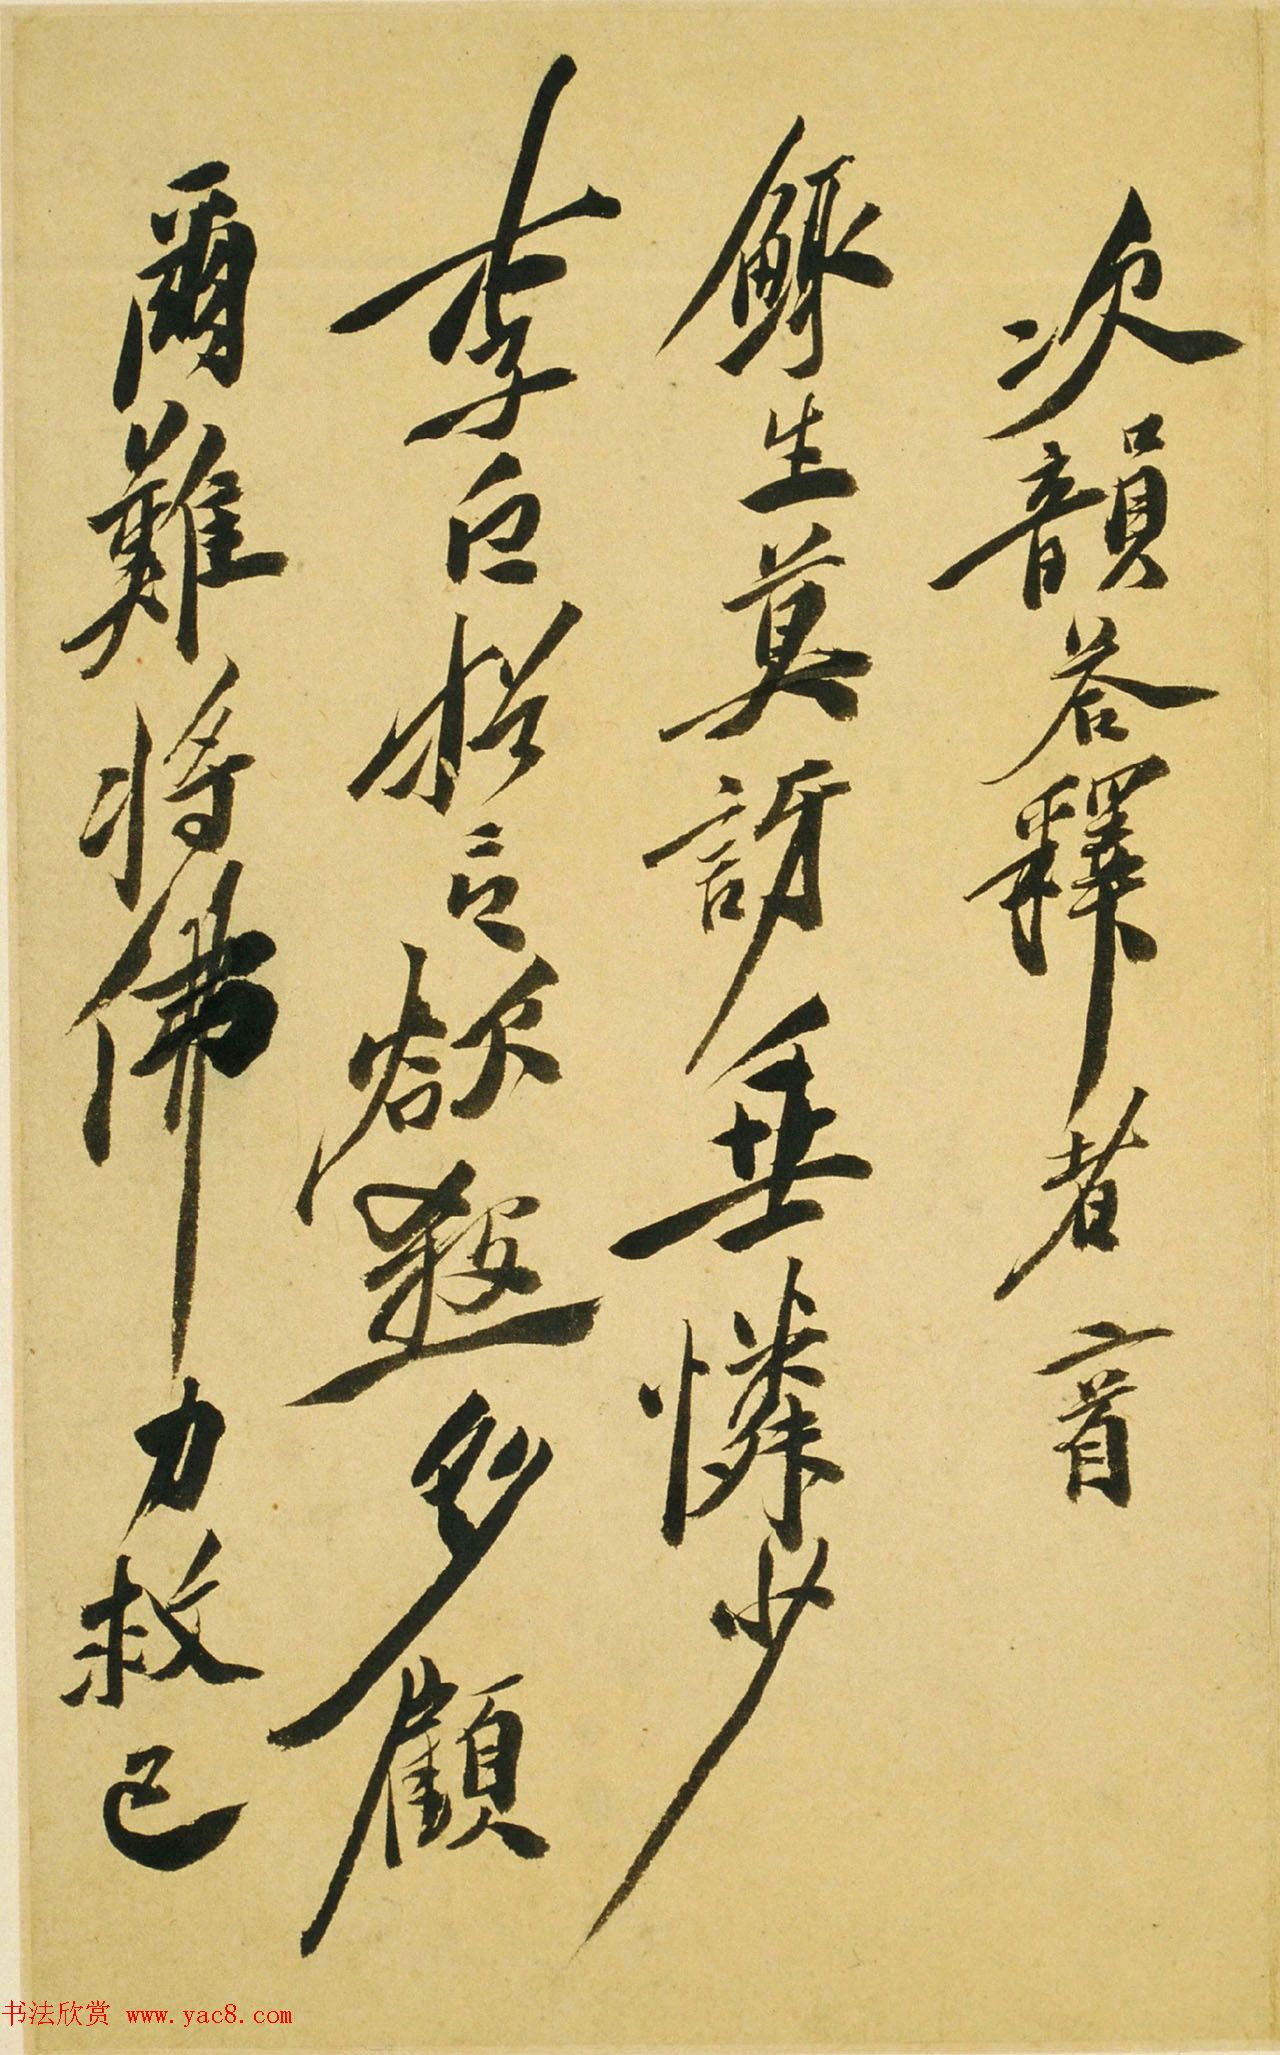 次韻荅釋者二首
鯫生莫訝垂憐少
李白言欲殺多顧
爾難將佛力救已
书法欣赏 www.yac8.com